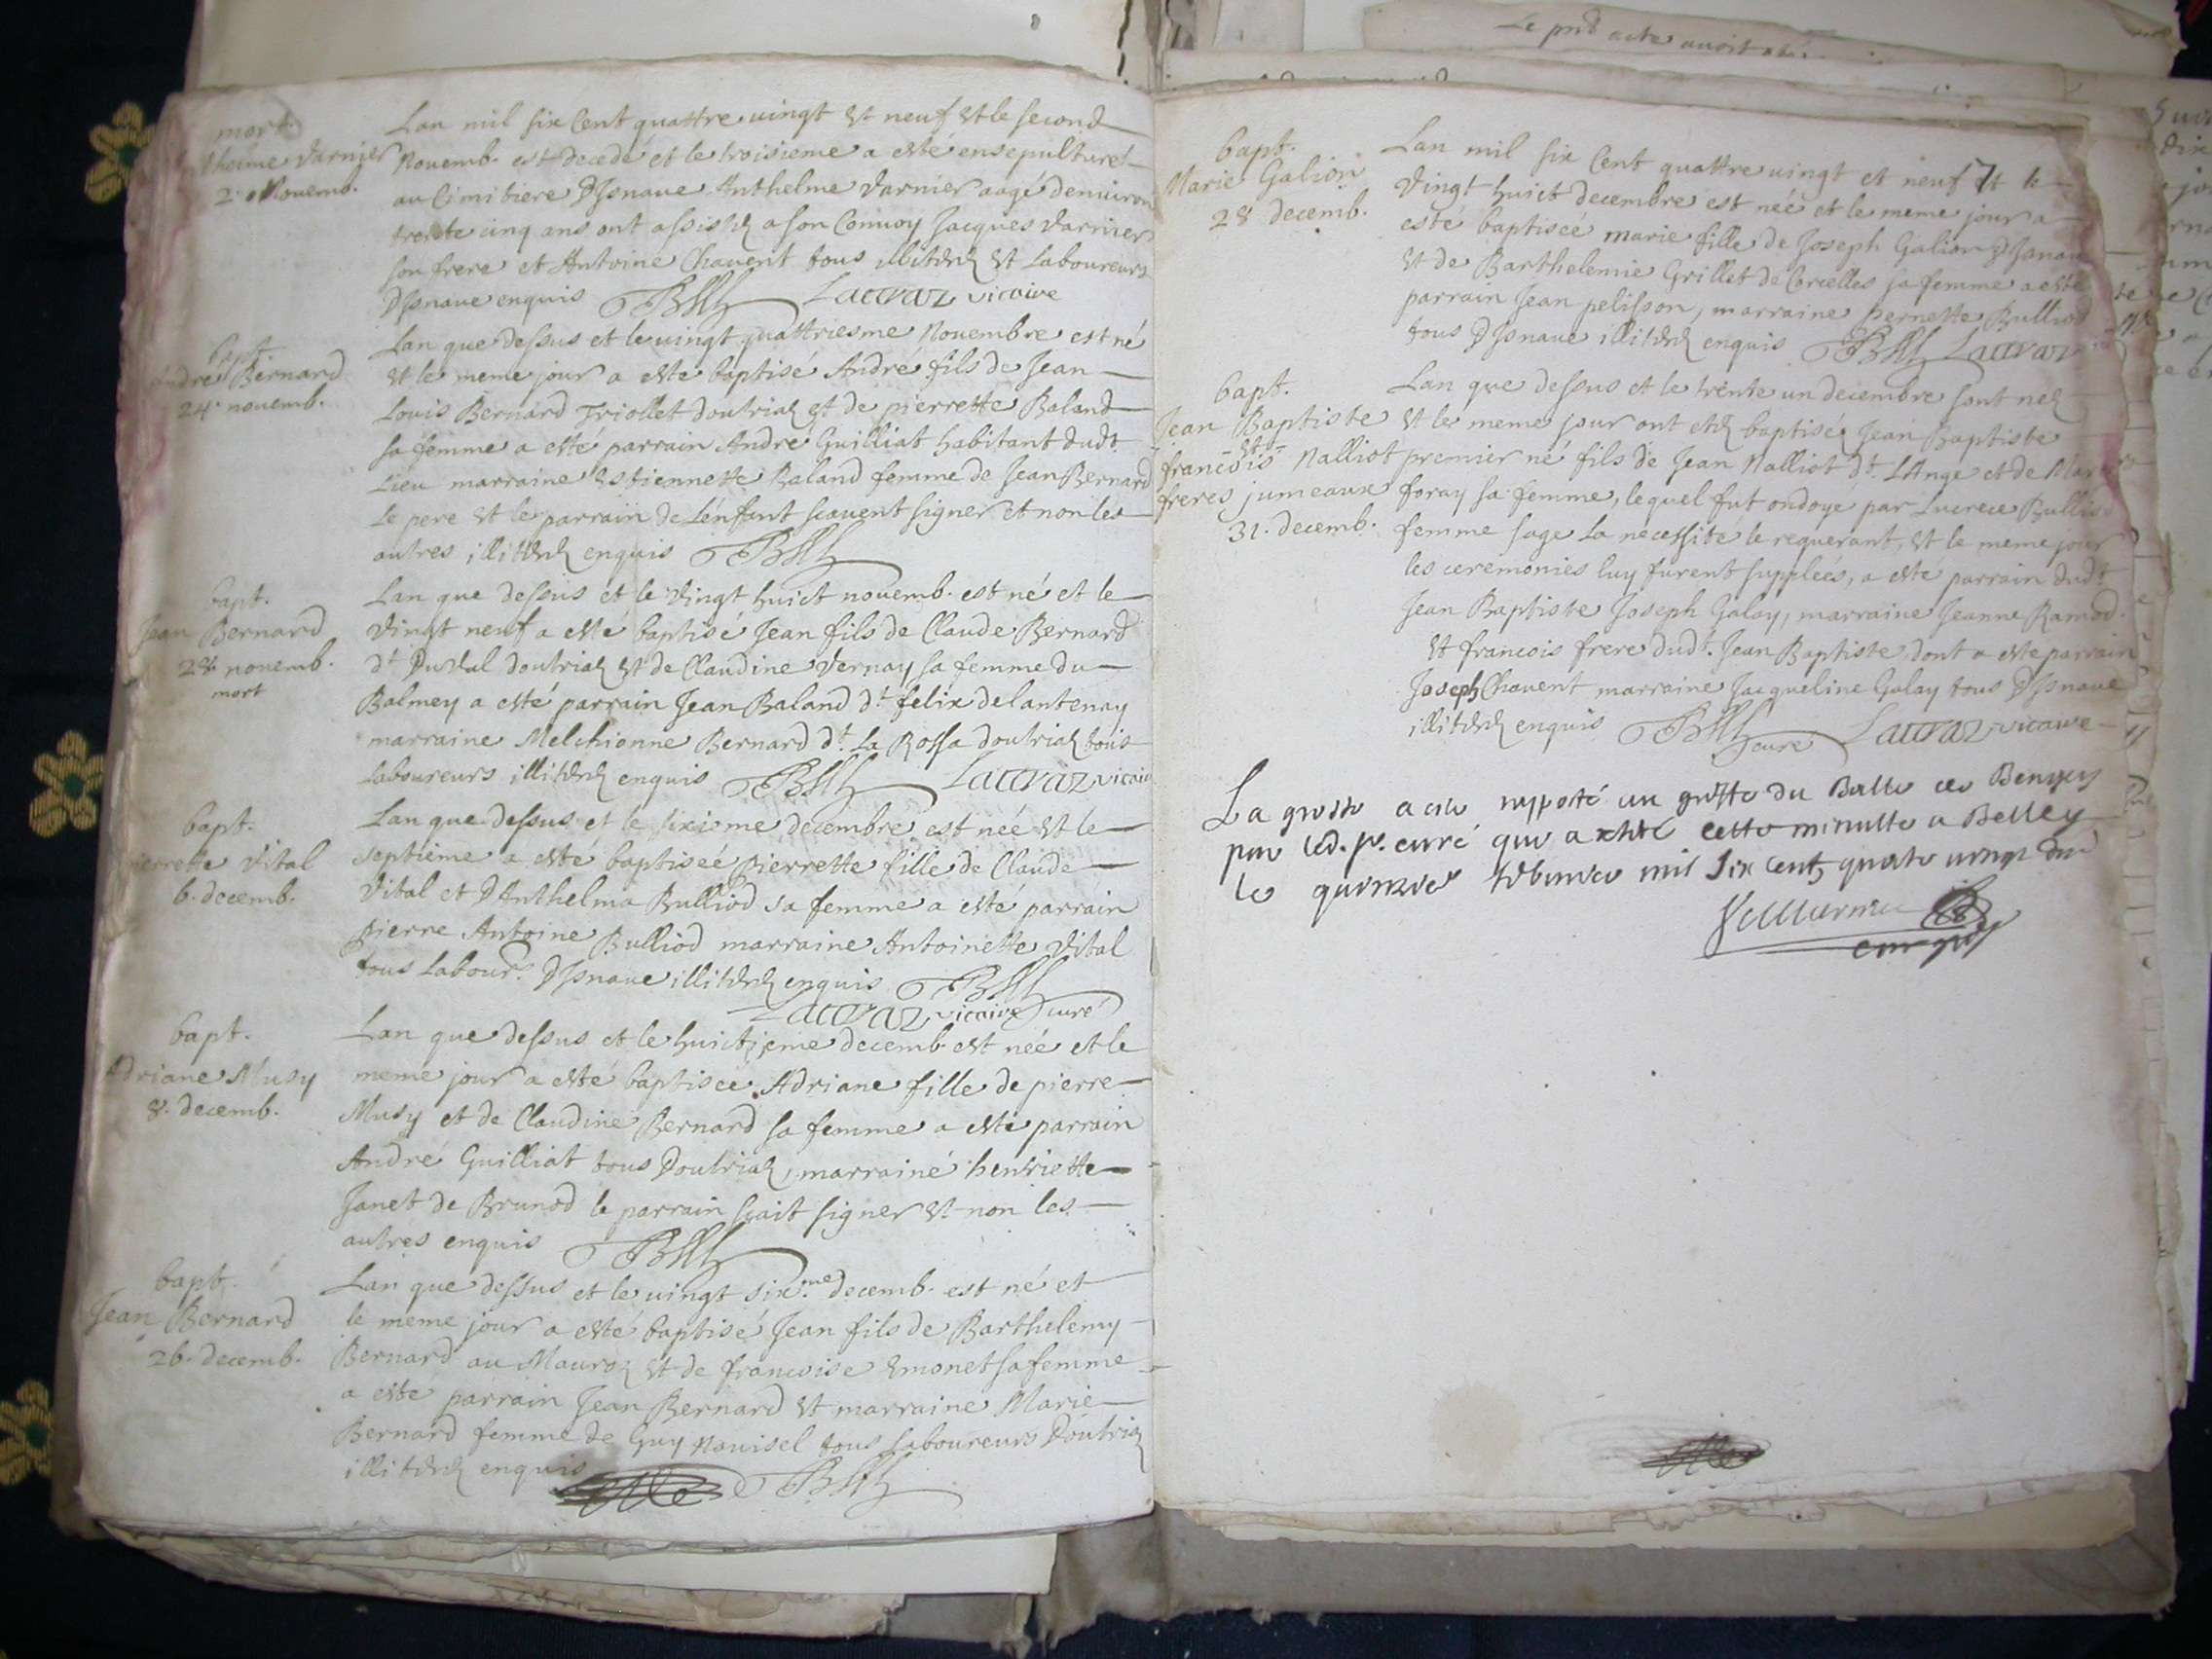 mort.
thelme Varnier
2e Novemb.
Lan mil six Cent quattre vingt et neuf et le second
Novemb. est decedé et le troisieme a esté ensepulturé
au Cimitiere Disnave Anthelme Varnier aagé denviron
trente cinq ans ont assistez a son Convoy Jacques Varnier
son frere et Antoine Chavent tous illiterez et Laboureurs
Disnave enquis Lacraz vicaire
bapt.
André Bernard
24e novemb.
Lan que dessus et le vingt quattriesme Novembre est né
et le meme jour a esté baptisé André fils de Jean
Louis Bernard Triollet doutriaz et de pierrette Baland
sa femme a esté parrain André Guilliat habitant dudt
Lieu marraine Estiennette Baland femme de Jean Bernard
Le pere et le parrain de Lénfant scavent signer et non les
autres illiterez enquis
bapt.
Jean Bernard
28 novemb.
mort
Lan que dessus et le vingt huict novemb. est né et le
vingt neuf a esté baptisé Jean fils de Claude Bernard
dt doutriaz et de Claudine Vernay sa femme du
Balmey a esté parrain Jean Baland dt felix de lantenay
marraine Melchionne Bernard dt La Rossa doutriaz tous
Laboureurs illiterez enquis Lacraz vicaire
bapt.
ierrette Vital
6. decemb.
Lan que dessus et le sixieme decembre est née et le
septieme a esté baptiseé Pierrette fille de Claude
Vital et DAnthelma Bulliod sa femme a esté parrain
pierre Antoine Bulliod marraine Antoinette Vital
tous Labour. Disnave illiterez enquis
Lacraz vicaire curé
bapt.
Adriane Musy
8. decemb.
Lan que dessus et le huictieme decemb. est née et le
meme jour a esté baptiseé Adriane fille de pierre
Musy et de Claudine Bernard sa femme a esté parrain
André Guilliat tous Doutriaz, marraine henriette
Janet de Brunod le parrain scait signer et non les
autres enquis
bapt.
Jean Bernard
26. decemb.
Lan que dessus et le vingt six.me decemb. est né et
le meme jour a esté baptisé Jean fils de Barthelemy
Bernard au Mauroz et de francoise Emonet sa femme
a esté parrain Jean Bernard et marraine Marie
Bernard femme de Guy Navisel tous Laboureurs Doutriaz
illiterez enquis
Le pnt acte avoit
bapt.
Marie Galion
28 decemb.
Lan mil six Cent quattre vingt et neuf et le
vingt huict decembre est neé et le meme jour a
esté baptiseé marie fille de Joseph Galion Disnave
et de Barthelemie Grillet de Corcelles sa femme a esté
parrain Jean pelisson, marraine pernette Bulliod
tous Disnave illiterez enquis Lacraz
bapt.
Jean Baptiste
et
francois Nalliot
freres jumeaux
31. decemb.
Lan que dessus et le trente un decembre sont nez
et le meme jour ont etez baptiséz Jean Baptiste
premier né fils de Jean Nalliot dt. LAnge et de
foray sa femme, lequel fut ondoyé par Lucrece
femme sage la necessité le requerant, et le meme jour
les ceremonies luy furent suppleés, a esté parrain dudt
Jean Baptiste Joseph Galay, marraine Jeanne Ramod
et francois frere dudt. Jean Baptiste, dont a esté parrain
Joseph Chavent marraine Jacqueline Galay tous Disnave
illiterez enquis curé Lacraz vicaire
La grosse a este apporté au greffe du
par led. sr. curé que a cette minutte a Belley
le mil six cents quatre vingt dix